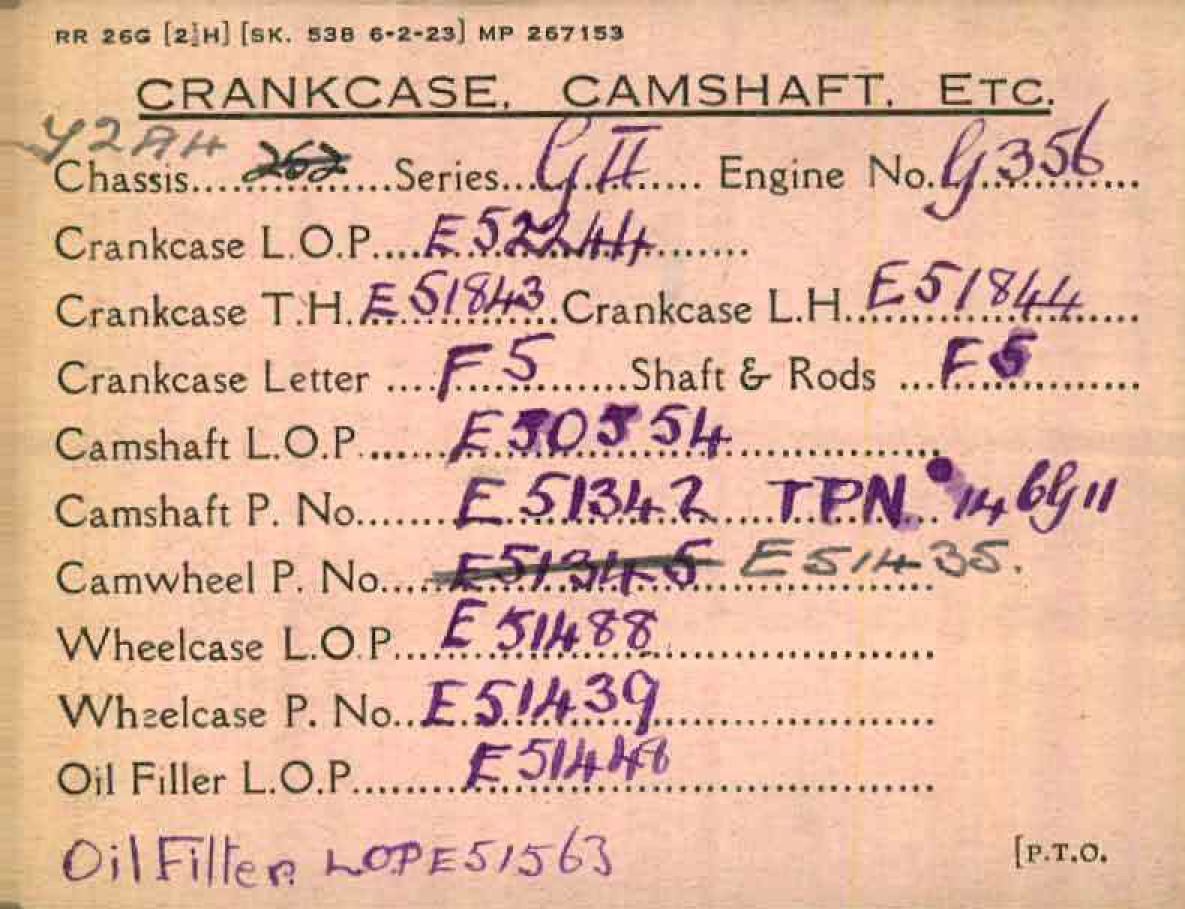 RR 26G [2½H] [SK. 538 6-2-23] MP 267153
CRANKCASE, CAMSHAFT, ETC.
Y2AH
Chassis.... 262 ....Series...GII.... Engine No.G356
Crankcase L.O.P....E52244
Crankcase T.H.E51843 Crankcase L.H.E51844
Crankcase Letter ....F5....Shaft & Rods ...F5
Camshaft L.O.P.....E50554
Camshaft P. No....E51342 TPN. 14 6G11
Camwheel P. No....E51345 E51435.
Wheelcase L.O.P...E51488
Wheelcase P. No..E51439
Oil Filler L.O.P....E51448
Oil Filter LOPE51563
[P.T.O.